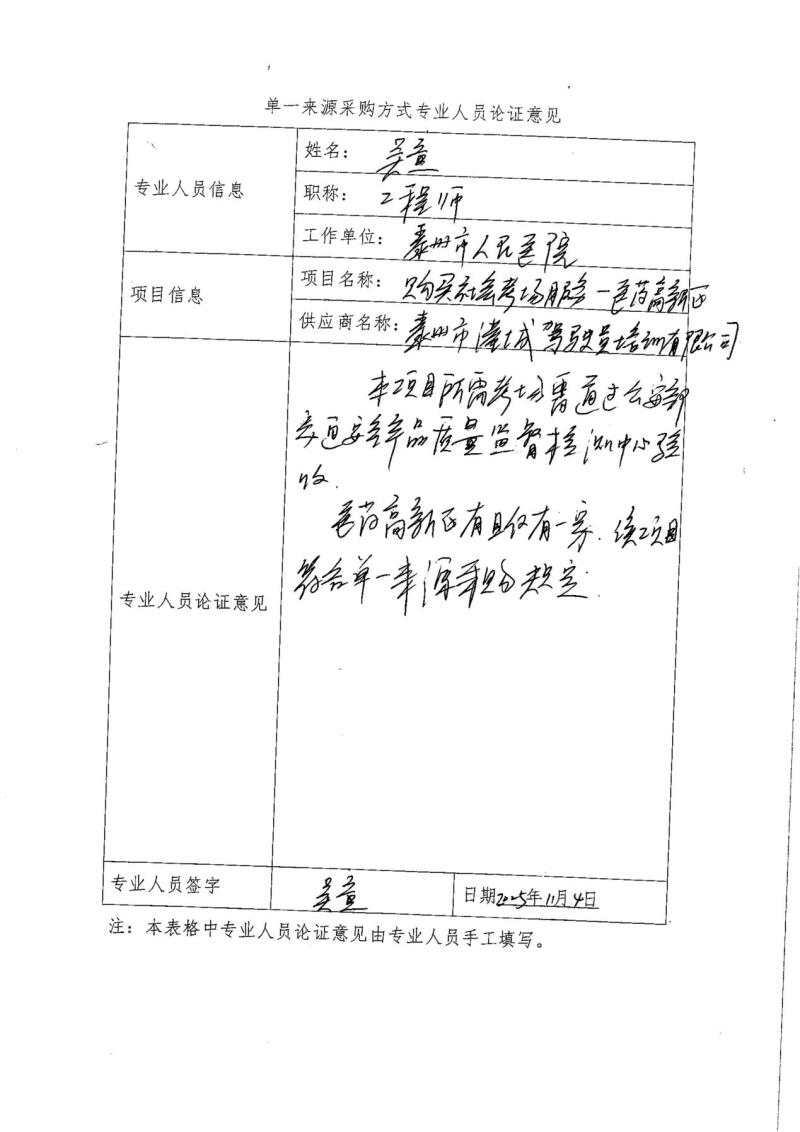 单一来源采购方式专业人员论证意见
专业人员信息
姓名：吴
职称：工程师
工作单位：泰州市人民医院
项目信息
项目名称：购买社会考场服务—医药高新区
供应商名称：泰州市 城驾驶员培训有限公司
专业人员论证意见
本项目所需考场需通过公安部
交通安全产品质量监督检测中心验
收.
医药高新区有且仅有一家. 该项目
符合单一来源采购规定.
专业人员签字
吴
日期2025年11月4日
注：本表格中专业人员论证意见由专业人员手工填写。